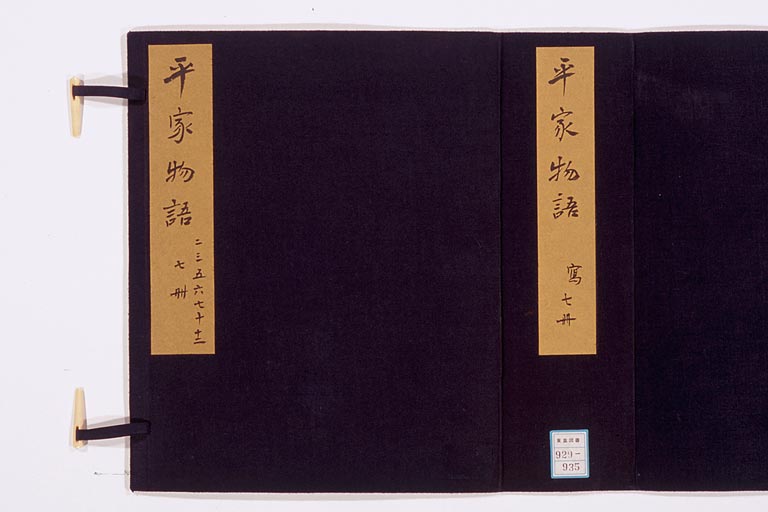 平家物語
二三五六七十十二
七冊
平家物語
寫七冊
貴重図書
929-
935